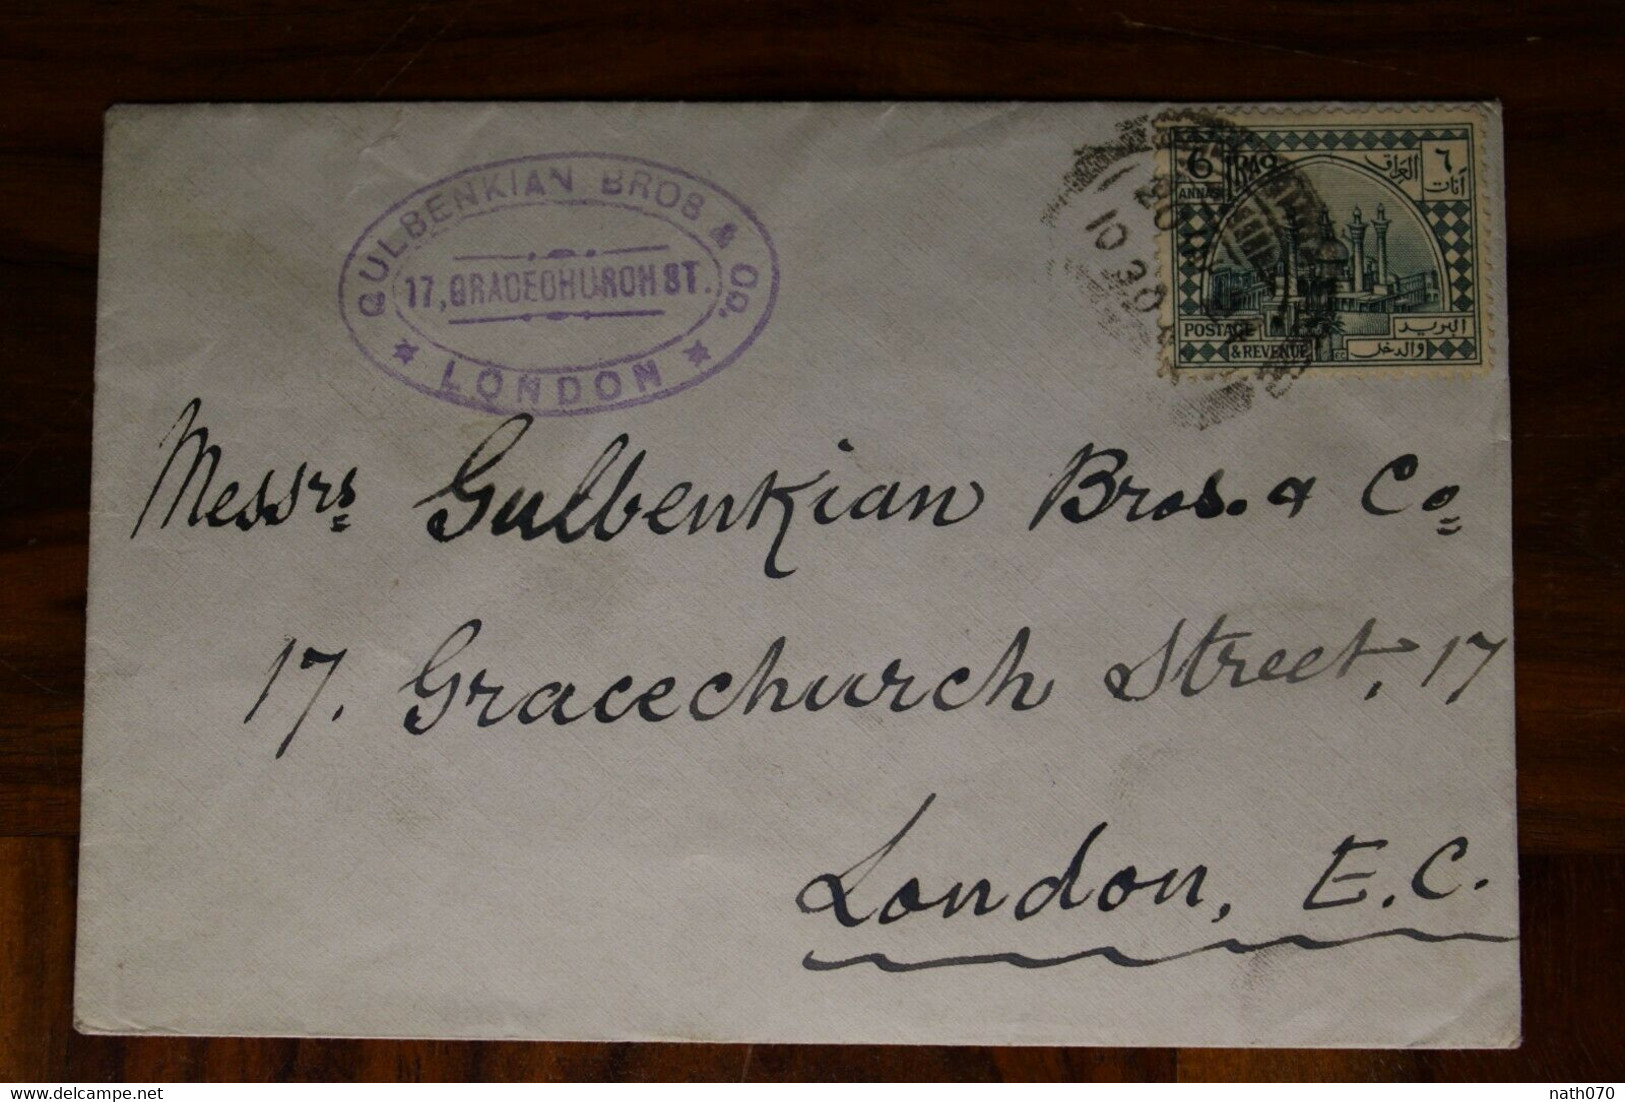 GULBENKIAN BROS & Co.
17, GRACECHURCH ST.
LONDON
6 ANNAS
IRAQ
العراق
٦ آنات
POSTAGE & REVENUE
البريد والدخل
10 30
Messrs Gulbenkian Bros. & Co
17. Gracechurch Street, 17
London, E.C.
nath070